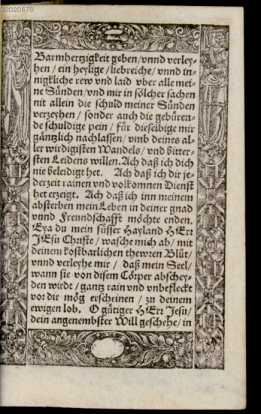 00020670
Barmhertzigkeit geben/ vnnd verley-
hen/ ein heylige/ liebreiche/ vnnd in-
nigkliche rew vnd laid vber alle mei-
ne Sünden/ vnd mir in sölcher sachen
nit allein die schuld meiner Sünden
verzeyhen/ sonder auch die gebüren-
de schuldige pein/ für dieselbige mir
gäntzlich nachlassen/ vmb deines al-
ler wirdigisten Wandels/ vnd bitter-
sten Leidens willen. Ach daß ich dich
nie beleidigt het. Ach daß ich dir je-
derzeit rainen vnd volkomnen Dienst
het erzeigt. Ach daß ich inn meinem
absterben mein Leben in deiner gnad
vnnd Freundschafft möchte enden.
Eya du mein süsser Hayland HErr
JEsu Christe/ wasche mich ab/ mit
deinem kostbarlichen thewren Blüt/
vnnd verleyhe mir/ daß mein Seel/
wann sie von disem Cörper abschey-
den würde/ gantz rain vnd vnbefleckt
vor dir mög erscheinen/ zu deinem
ewigen lob. O gütiger HErr Jesu/
dein angenembster Will geschehe/ in